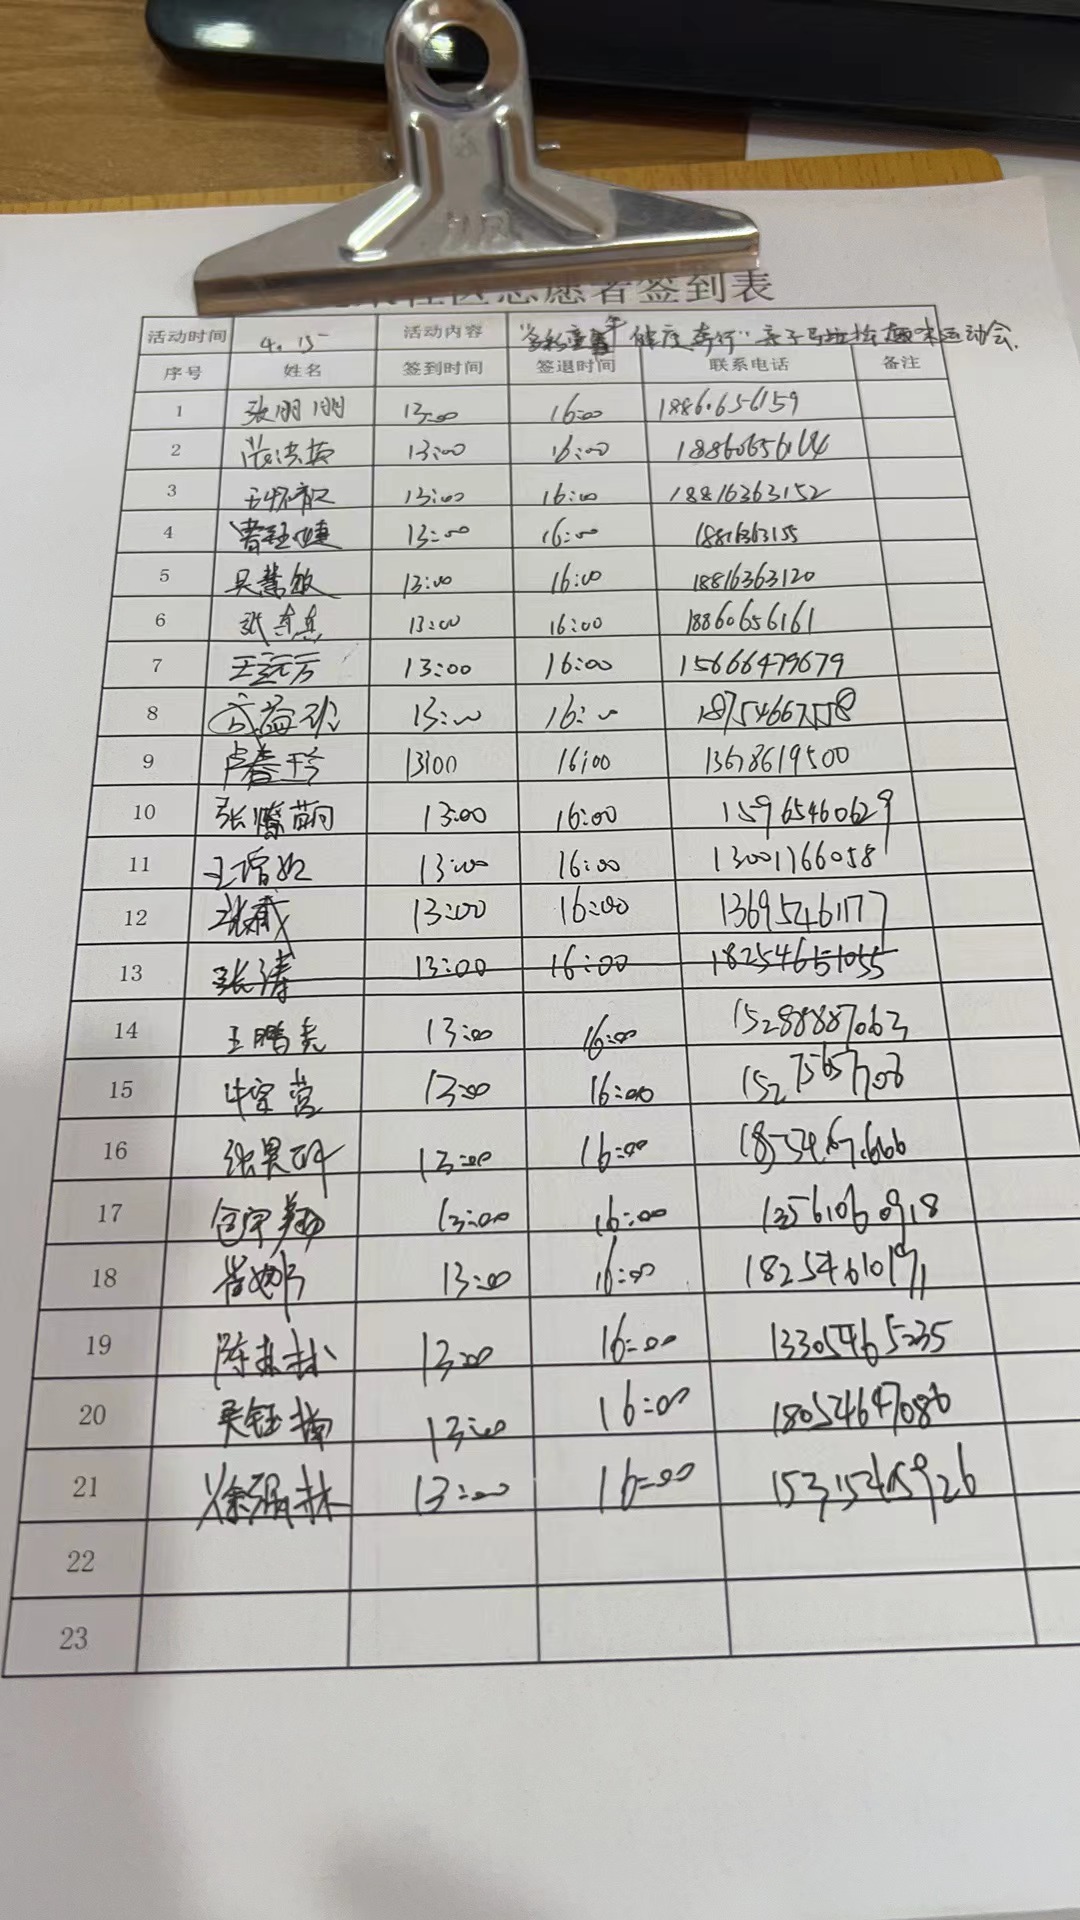 社区志愿者签到表
活动时间 4.15 活动内容 健康 亲子马拉松趣味运动会
序号 姓名 签到时间 签退时间 联系电话 备注
1 张朋朋 13:00 16:00 18860656159
2 13:00 16:00 18860656164
3 13:00 16:00 18816363152
4 13:00 16:00 18816363155
5 吴慧敏 13:00 16:00 18816363120
6 13:00 16:00 18860656161
7 王远方 13:00 16:00 15666479679
8 13:00 16:00
9 卢春珍 13:00 16:00 13678619500
10 张 萌 13:00 16:00 15965460629
11 王 13:00 16:00 13001766058
12 张威 13:00 16:00 13695461177
13 张涛 13:00 16:00 18254651055
14 王鹏 13:00 16:00 15288887063
15 牛 营 13:00 16:00 15275657708
16 张 13:00 16:00
17 13:00 16:00 13561060918
18 崔娜 13:00 16:00 18254610191
19 陈 13:00 16:00 13305465235
20 吴钰楠 13:00 16:00 18054647086
21 徐 林 13:00 16:00 15315465926
22
23